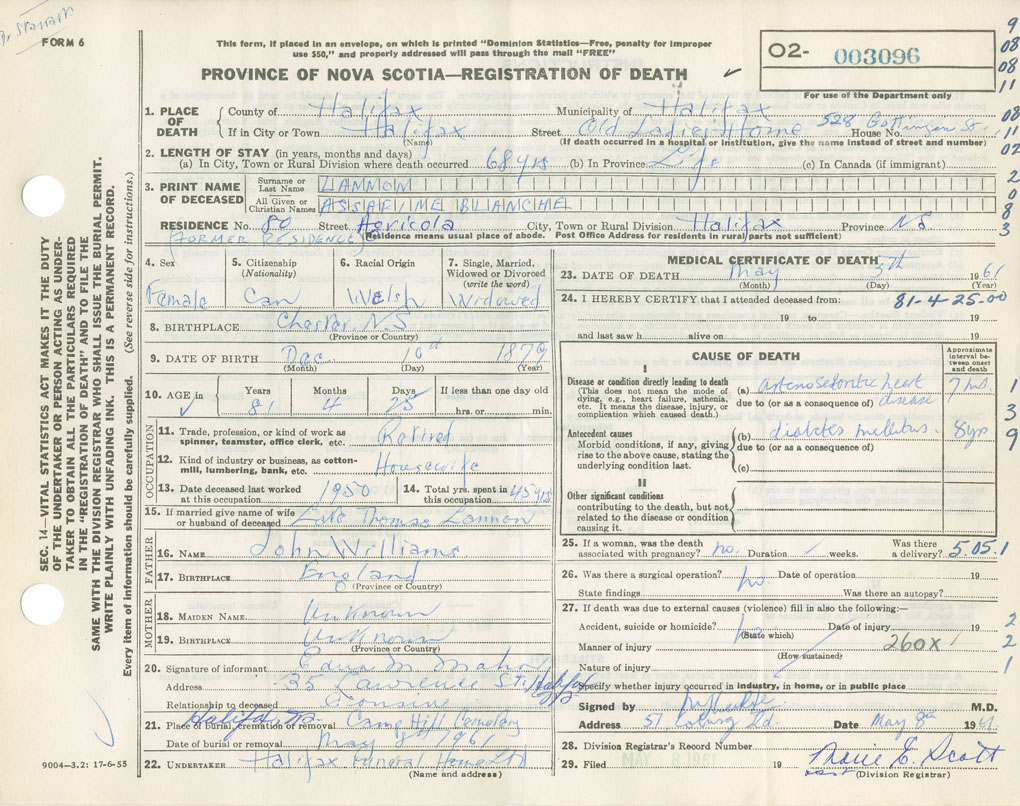 FORM 6
This form, if placed in an envelope, on which is printed "Dominion Statistics—Free, penalty for improper
use $50," and properly addressed will pass through the mail "FREE"
PROVINCE OF NOVA SCOTIA—REGISTRATION OF DEATH
O2- 003096
For use of the Department only
1. PLACE OF DEATH { County of Halifax Municipality of Halifax
If in City or Town Halifax Street Old Ladies Home 528 Gottingen St. House No.
(Name) (If death occurred in a hospital or institution, give the name instead of street and number)
2. LENGTH OF STAY (in years, months and days)
(a) In City, Town or Rural Division where death occurred 68 yrs (b) In Province Life (c) In Canada (if immigrant)
3. PRINT NAME OF DECEASED Surname or Last Name LANNON
All Given or Christian Names ASSAFINE BLANCHE
RESIDENCE No. 80 Street Agricola City, Town or Rural Division Halifax Province NS
(FORMER RESIDENCE) (Residence means usual place of abode. Post Office Address for residents in rural parts not sufficient)
4. Sex Female
5. Citizenship (Nationality) Can
6. Racial Origin Welsh
7. Single, Married, Widowed or Divorced (write the word) Widowed
8. BIRTHPLACE Chester N.S
(Province or Country)
9. DATE OF BIRTH Dec 10th 1879
(Month) (Day) (Year)
10. AGE in Years 81 Months 4 Days 25 If less than one day old hrs. or min.
OCCUPATION
11. Trade, profession or kind of work as spinner, teamster, office clerk, etc. Retired
12. Kind of industry or business, as cotton-mill, lumbering, bank, etc. Housewife
13. Date deceased last worked at this occupation 1950
14. Total yrs. spent in this occupation 45 yrs
15. If married give name of wife or husband of deceased Late Thomas Lannon
FATHER
16. NAME John Williams
17. BIRTHPLACE England
(Province or Country)
MOTHER
18. MAIDEN NAME Unknown
19. BIRTHPLACE Unknown
(Province or Country)
20. Signature of informant Edna M. Mahar
Address 35 Lawrence St. Halifax NS
Relationship to deceased Cousin
21. Place of burial, cremation or removal Halifax NS Camp Hill Cemetery
Date of burial or removal May 8 1961
22. UNDERTAKER Halifax Funeral Home Ltd
(Name and address)
MEDICAL CERTIFICATE OF DEATH
23. DATE OF DEATH May 5th 1961
(Month) (Day) (Year)
24. I HEREBY CERTIFY that I attended deceased from: 81-4-25-00
19 to 19
and last saw h alive on 19
CAUSE OF DEATH
Approximate interval between onset and death
I
Disease or condition directly leading to death
(This does not mean the mode of dying, e.g., heart failure, asthenia, etc. It means the disease, injury, or complication which caused death.)
(a) arteriosclerotic heart disease 7 yrs.
due to (or as a consequence of)
Antecedent causes
Morbid conditions, if any, giving rise to the above cause, stating the underlying condition last.
(b) diabetes mellitus. 8 yrs
due to (or as a consequence of)
(c)
II
Other significant conditions
contributing to the death, but not related to the disease or condition causing it.
25. If a woman, was the death associated with pregnancy? no. Duration weeks. Was there a delivery? 5.05.1
26. Was there a surgical operation? no Date of operation 19
State findings Was there an autopsy?
27. If death was due to external causes (violence) fill in also the following:—
Accident, suicide or homicide? no Date of injury 19
(State which)
Manner of injury 260X
(How sustained)
Nature of injury
Specify whether injury occurred in industry, in home, or in public place
Signed by M.D.
Address 51 Coburg Rd. Date May 8th 1961
28. Division Registrar's Record Number
29. Filed 19 Marie E. Scott
(Division Registrar)
9004-3.2: 17-6-55
SEC. 14—VITAL STATISTICS ACT MAKES IT THE DUTY
OF THE UNDERTAKER OR PERSON ACTING AS UNDER-
TAKER TO OBTAIN ALL THE PARTICULARS REQUIRED
IN THE "REGISTRATION OF DEATH" AND TO FILE THE
SAME WITH THE DIVISION REGISTRAR WHO SHALL ISSUE THE BURIAL PERMIT.
WRITE PLAINLY WITH UNFADING INK. THIS IS A PERMANENT RECORD.
Every item of information should be carefully supplied. (See reverse side for instructions.)
9
08
08
11
08
11
02
2
0
8
3
1
3
9
2
2
1